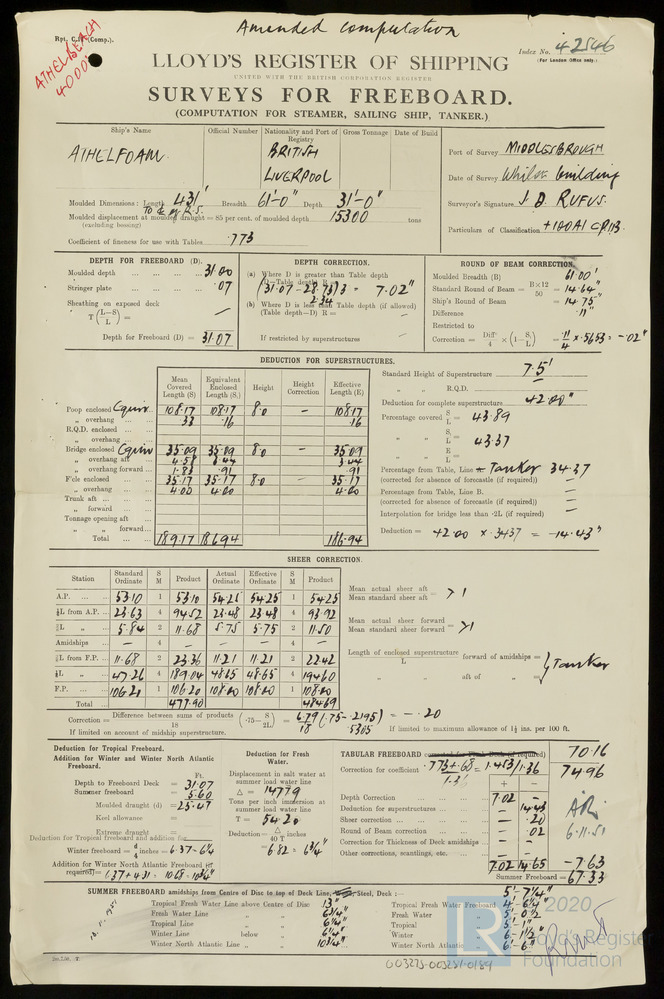 Amended computation
Rpt. C.11 (Comp.).
ATHELBEACH
4000
Index No. 42546
(For London Office only.)
LLOYD'S REGISTER OF SHIPPING
UNITED WITH THE BRITISH CORPORATION REGISTER
SURVEYS FOR FREEBOARD.
(COMPUTATION FOR STEAMER, SAILING SHIP, TANKER.)
Ship's Name Official Number Nationality and Port of Registry Gross Tonnage Date of Build
ATHELFOAM BRITISH
LIVERPOOL
Port of Survey MIDDLESBROUGH
Date of Survey Whilst building
Surveyor's Signature J. D. RUFUS.
Particulars of Classification +100A1
Moulded Dimensions: Length 431' Breadth 61'-0" Depth 31'-0"
Moulded displacement at moulded draught = 85 per cent. of moulded depth 15300 tons
(excluding bossing)
Coefficient of fineness for use with Tables .773
DEPTH FOR FREEBOARD (D).
Moulded depth 31.00
Stringer plate .07
Sheathing on exposed deck
T (L-S/L) =
Depth for Freeboard (D) = 31.07
DEPTH CORRECTION.
(a) Where D is greater than Table depth
(D-Table depth) R =
(31.07-28.73)3 = 7.02"
2.34
(b) Where D is less than Table depth (if allowed)
(Table depth-D) R =
If restricted by superstructures
ROUND OF BEAM CORRECTION.
Moulded Breadth (B) 61.00'
Standard Round of Beam = B×12/50 = 14.64"
Ship's Round of Beam = 14.75"
Difference .11"
Restricted to
Correction = Diff/4 × (1-S/L) = .11/4 × .5653 = -.02"
DEDUCTION FOR SUPERSTRUCTURES.
Mean Covered Length (S) Equivalent Enclosed Length (S₁) Height Height Correction Effective Length (E)
Poop enclosed Equiv. 108.17 108.17 8.0 - 108.17
" overhang .33 .16 .16
R.Q.D. enclosed
" overhang
Bridge enclosed Equiv 35.09 35.09 8.0 - 35.09
" overhang aft 4.58 3.44 3.44
" overhang forward 1.83 .91 .91
F'cle enclosed 35.17 35.17 8.0 - 35.17
" overhang 4.00 4.00 4.00
Trunk aft
" forward
Tonnage opening aft
" " forward
Total 189.17 186.94 186.94
Standard Height of Superstructure 7.5'
" " R.Q.D.
Deduction for complete superstructure 42.00"
Percentage covered S/L = 43.89
" S₁/L = 43.37
" E/L =
Percentage from Table, Line Tanker 34.37
(corrected for absence of forecastle (if required))
Percentage from Table, Line B.
(corrected for absence of forecastle (if required))
Interpolation for bridge less than ·2L (if required)
Deduction = 42.00 × .3437 = -14.43"
SHEER CORRECTION.
Station Standard Ordinate S M Product Actual Ordinate Effective Ordinate S M Product
A.P. 53.10 1 53.10 54.25 54.25 1 54.25
⅙L from A.P. 23.63 4 94.52 23.48 23.48 4 93.92
⅓L " 5.84 2 11.68 5.75 5.75 2 11.50
Amidships - 4 - - - 4 -
⅓L from F.P. 11.68 2 23.36 11.21 11.21 2 22.42
⅙L " 47.26 4 189.04 48.65 48.65 4 194.60
F.P. 106.20 1 106.20 108.00 108.00 1 108.00
Total 477.90 484.69
Mean actual sheer aft / Mean standard sheer aft = >1
Mean actual sheer forward / Mean standard sheer forward = >1
Length of enclosed superstructure / L forward of amidships =
" " aft of " = } Tanker
Correction = Difference between sums of products/18 (·75-S/2L) = 6.79/18 (.75-.2195) = -.20
.5305
If limited on account of midship superstructure. If limited to maximum allowance of 1½ ins. per 100 ft.
Deduction for Tropical Freeboard.
Addition for Winter and Winter North Atlantic Freeboard.
Ft.
Depth to Freeboard Deck = 31.07
Summer freeboard = 5.60
Moulded draught (d) = 25.47
Keel allowance =
Extreme draught =
Deduction for Tropical Freeboard and addition for
Winter freeboard = d/4 inches = 6.37 - 6¼
Addition for Winter North Atlantic Freeboard (if
required) = 6.37+4.31 = 10.68 - 10¾"
Deduction for Fresh Water.
Displacement in salt water at summer load water line
Δ = 14779
Tons per inch immersion at summer load water line
T = 54.20
Deduction = Δ/40 T inches
= 6.82 = 6¾"
TABULAR FREEBOARD corrected for Flush Deck (if required) 70.16
Correction for coefficient .773+.68/1.36 = 1.453/1.36 74.96
+ -
Depth Correction 7.02 -
Deduction for superstructures - 14.43
Sheer correction - .20
Round of Beam correction - .02
Correction for Thickness of Deck amidships - -
Other corrections, scantlings, etc. - -
7.02 14.65 -7.63
Summer Freeboard = 67.33
6.11.51
SUMMER FREEBOARD amidships from Centre of Disc to top of Deck Line, Steel, Deck :- 5'-7¼"
Tropical Fresh Water Line above Centre of Disc 13"
Fresh Water Line " " 6¾"
Tropical Line " " 6¼"
Winter Line below " 6¼"
Winter North Atlantic Line " " 10¾"
Tropical Fresh Water Freeboard 4'-6¼"
Fresh Water " 5'-0½"
Tropical " 5'-1"
Winter " 6'-1½"
Winter North Atlantic " 6'-6"
LR © 2020
Lloyd's Register
Foundation
003275-003281-0184